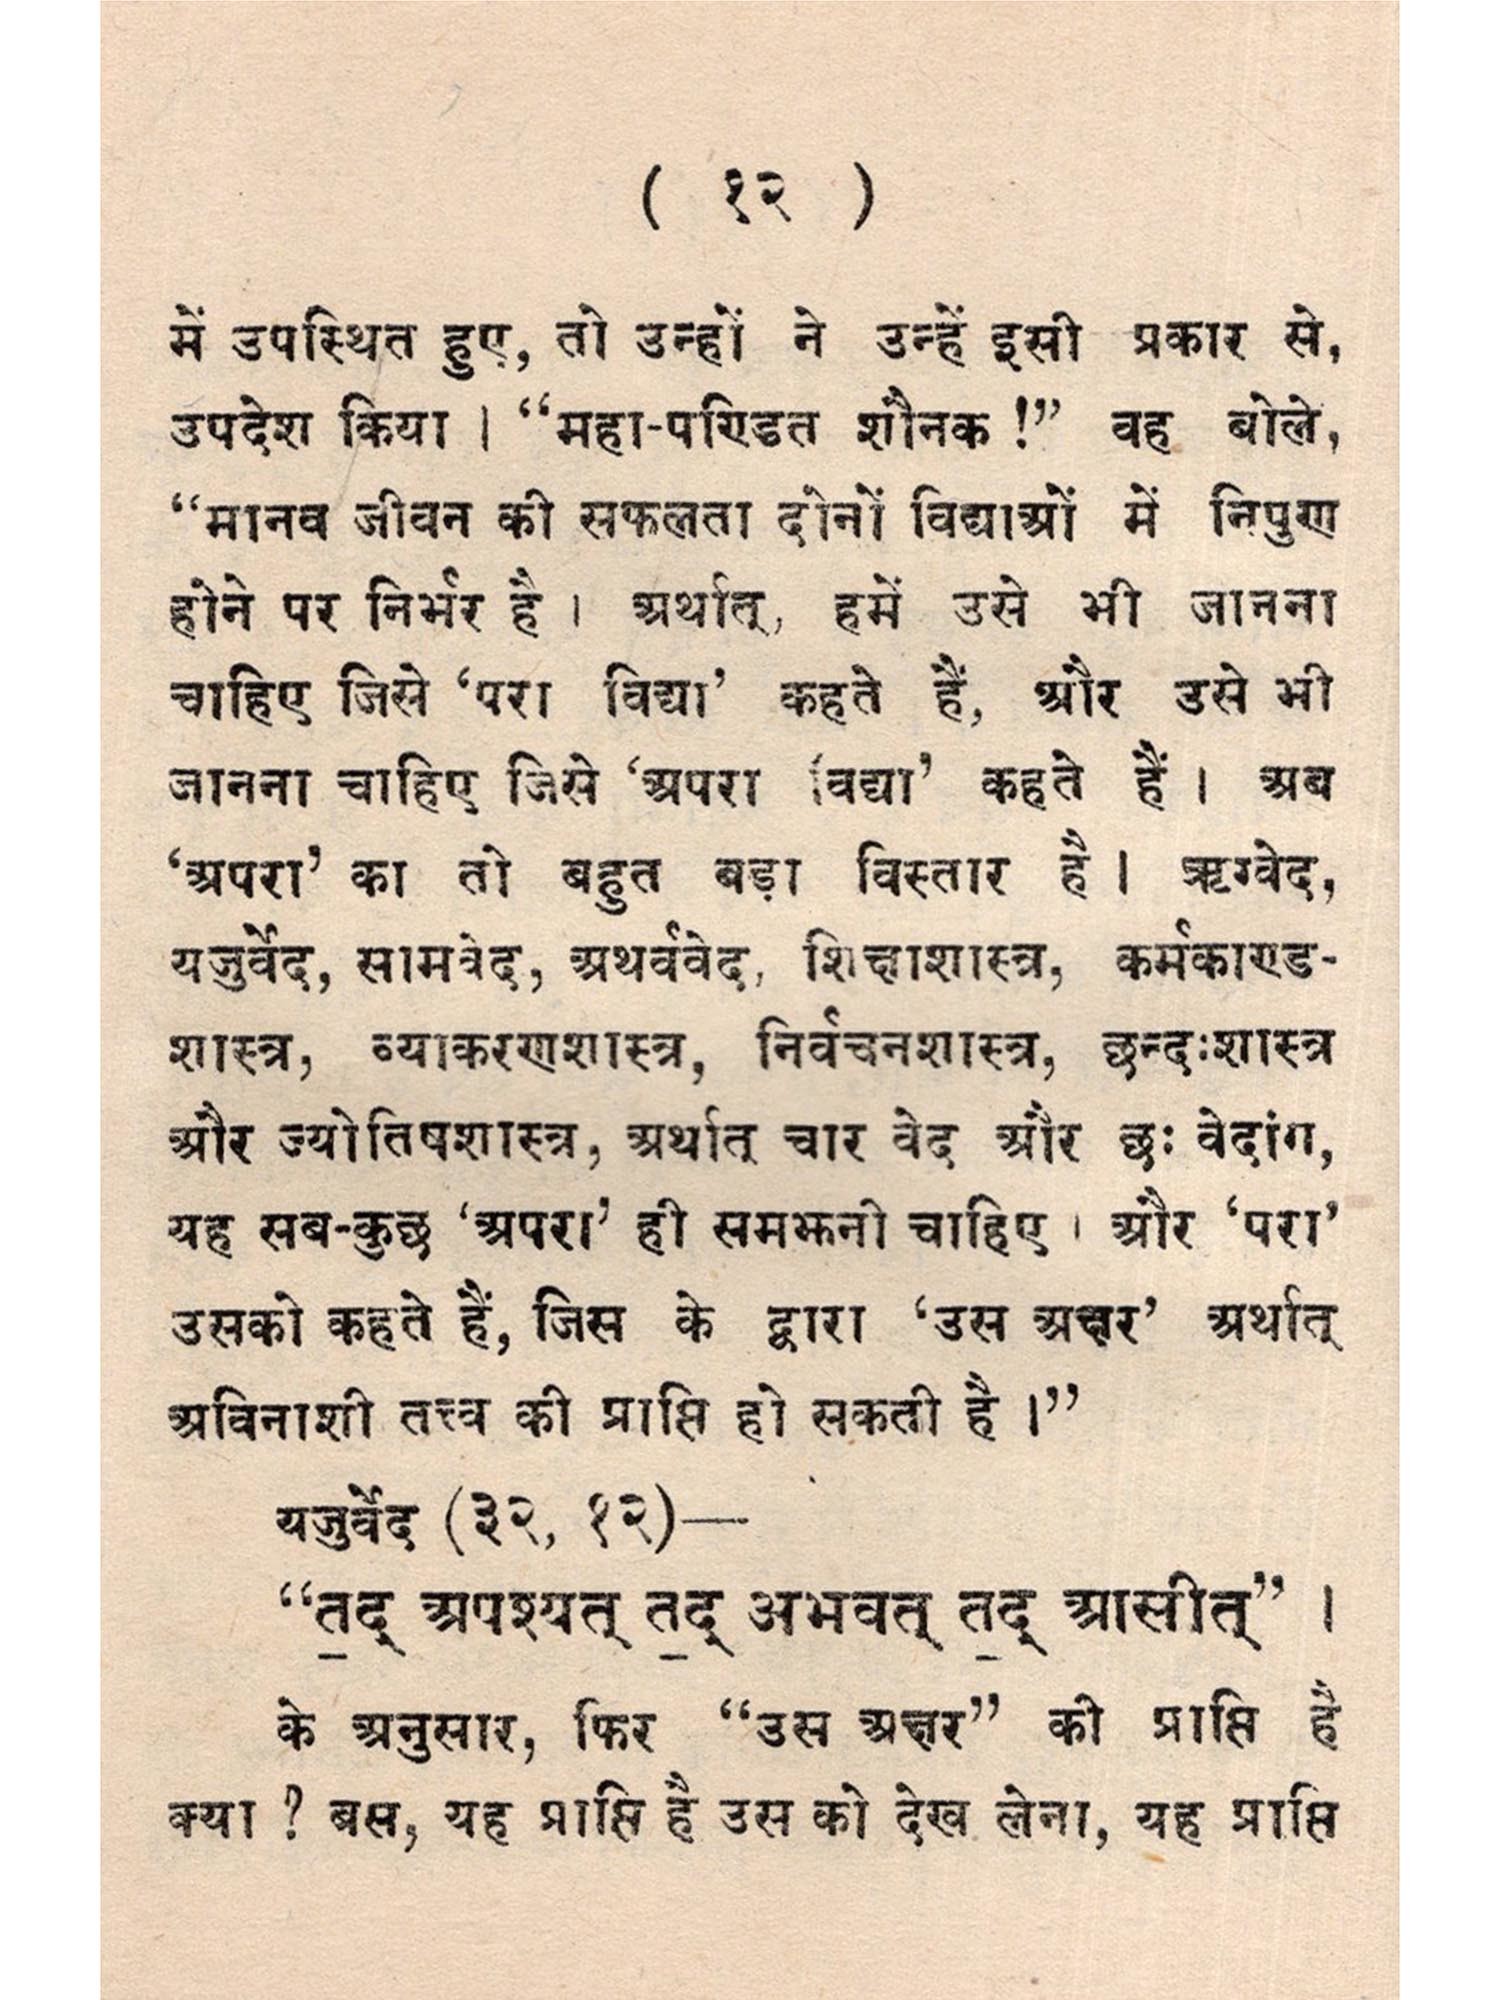 ( १२ )
में उपस्थित हुए, तो उन्हों ने उन्हें इसी प्रकार से,
उपदेश किया । “महा-पण्डित शौनक !” वह बोले,
“मानव जीवन की सफलता दोनों विद्याओं में निपुण
होने पर निर्भर है । अर्थात्, हमें उसे भी जानना
चाहिए जिसे ‘परा विद्या’ कहते हैं, और उसे भी
जानना चाहिए जिसे ‘अपरा विद्या’ कहते हैं । अब
‘अपरा’ का तो बहुत बड़ा विस्तार है । ऋग्वेद,
यजुर्वेद, सामवेद, अथर्ववेद, शिक्षाशास्त्र, कर्मकाण्ड-
शास्त्र, व्याकरणशास्त्र, निर्वचनशास्त्र, छन्दःशास्त्र
और ज्योतिषशास्त्र, अर्थात् चार वेद और छः वेदांग,
यह सब-कुछ ‘अपरा’ ही समझनी चाहिए । और ‘परा’
उसको कहते हैं, जिस के द्वारा ‘उस अक्षर’ अर्थात्
अविनाशी तत्त्व की प्राप्ति हो सकती है ।”
यजुर्वेद (३२, १२)—
“त॒द् अपश्यत् त॒द् अभवत् त॒द् आसीत्” ।
के अनुसार, फिर “उस अक्षर” की प्राप्ति है
क्या ? बस, यह प्राप्ति है उस को देख लेना, यह प्राप्ति